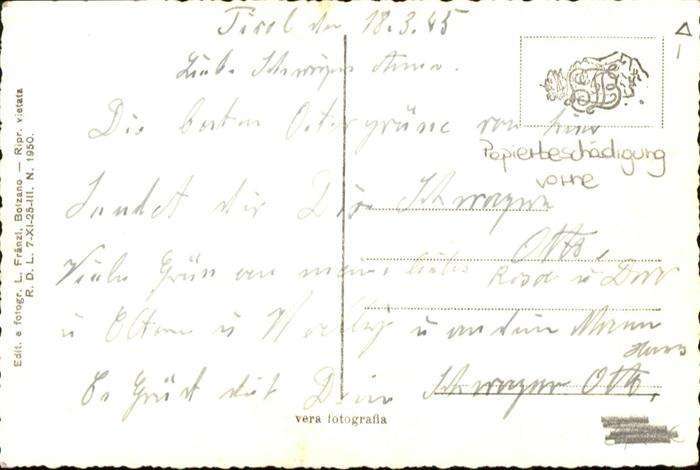 Tirol den 18.3.45
Liebe Schwägerin Anna.
Die besten Ostergrüße von hier
Sendet dir Dein Schwager
Otto.
Viele Grüße an meine liebe Rosa u Dora
u Eltern u u an dein Mann
Hans
Es Grüßt dich Dein Schwager Otto.
Papierbeschädigung
vorne
vera fotografia
Edit. e fotogr. L. Fränzl, Bolzano — Ripr. vietata
R. D. L. 7-XI-25-III. N. 1950.